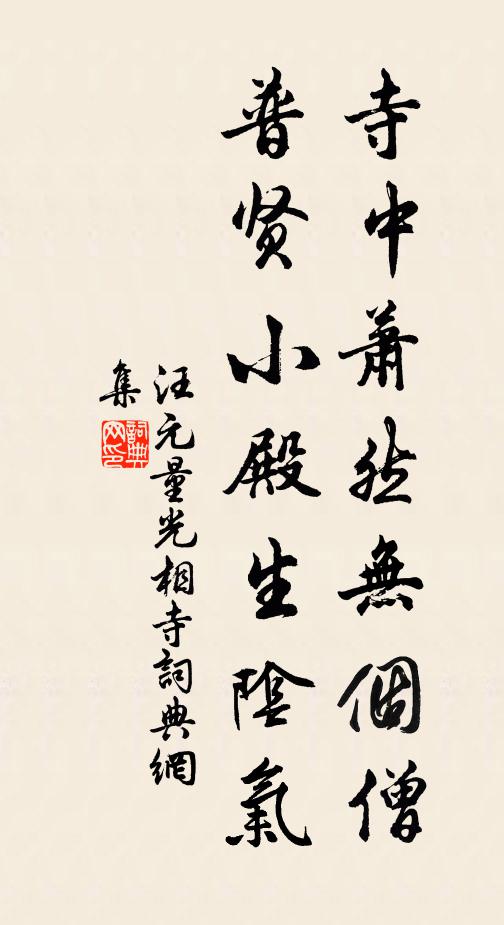 寺中蕭然無個僧
普贤小殿生陰氣
汪元量光相寺詞典網
集
詞典網印